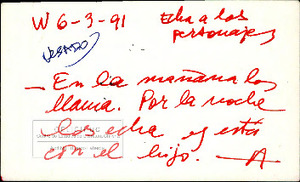 W 6-3-91
Echa a los
personajes
USADO
— En la mañana los
llama. Por la noche
los echa y está
con el hijo. —A